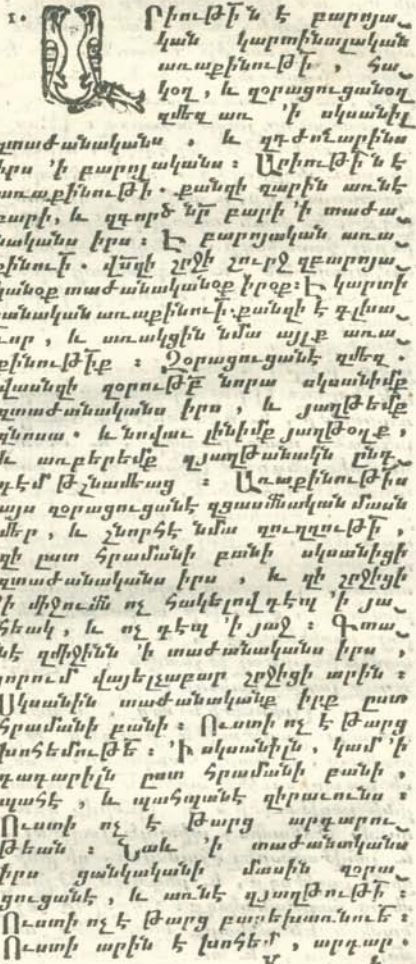 1. Արիութի՛ն է բարոյա֊
կան կարտինալական
առաքինութի՛, հա֊
կօղ, և զօրացուցանօղ
զմեզ առ ՚ի սկսանիլ
զտաժանականս, և զդժուարինս
իրս ՚ի բարոյականս։ Արիութի՛ն է
առաքինութի՛. քանզի զարին առնէ
բարի, և զգործ նր՛ բարի ՚ի տաժա֊
նականս իրս։ Է բարոյական առա֊
քինուի՛. վս՛զի շրջի շուրջ զբարոյա֊
կանօք տաժանականօք իրօք։ Է կարտի
նանական առաքինուի՛. քանզի է գլխա֊
ւոր, և առակցին նմա այլք առա֊
քինութի՛ք։ Զօրացուցանէ զմեզ.
վասնզի զօրութբ՛ նորա սկսանիմք
զտաժանականս իրս, և յաղթեմք
զնոսա. և նովաւ լինիմք յաղթօղք,
և առբերեմք զյաղթանակն ընդ֊
դէմ թշնամեաց։ Առաքինութիս
այս զօրացուցանէ զցասմնական մասն
մեր, և շնորհէ նմա զուղղութի՛,
զի ըստ հրամանի բանի սկսանիցի
զտաժանականս իրս, և զի շրջիցի
՚ի միջումն ոչ հակելով դէպ ՚ի յա֊
հեակ, և ոչ դէպ ՚ի յաջ։ Գտա֊
նէ զմիջինն ՚ի տաժանականս իրս,
որում վայելչաբար շրջիցի արին։
Սկսանին տաժանականք իրք ըստ
հրամանի բանի։ Ուստի ոչ է թարց
խոհեմութե՛։ ՚Ի սկսանիլն, կամ ՚ի
դադարիլն ըստ հրամանի բանի,
պահէ, և պահպանէ զիրաւունս։
Ուստի ոչ է թարց արդարու֊
թեան։ Նաև ՚ի տաժանականս
իրս ցանկականի մասին զօրա֊
ցուցանէ, և առնէ զյաղթութի՛։
Ուստի ոչ է թարց բարեխառնուե՛։
Ուստի արին է խոհեմ, արդար.